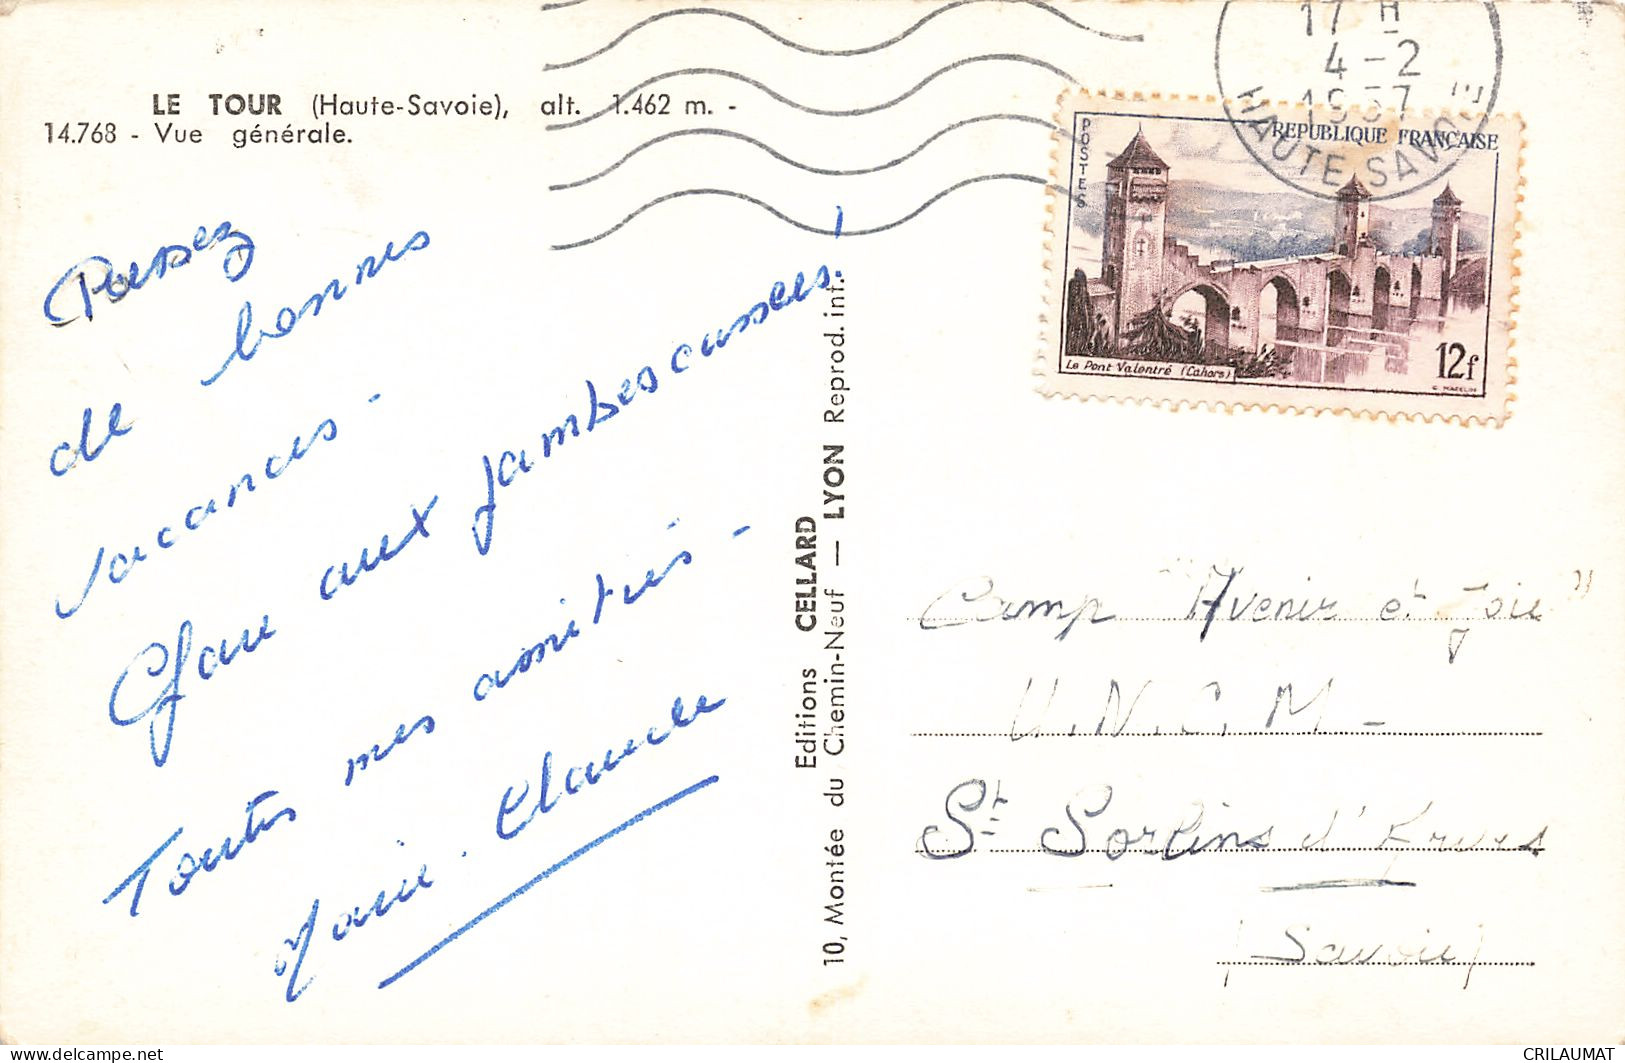 LE TOUR (Haute-Savoie), alt. 1.462 m. -
14.768 - Vue générale.
Passez
de bonnes
vacances -
Gare aux jambes cassées!
Toutes mes amitiés -
Marie. Claude
Editions CELLARD
10, Montée du Chemin-Neuf — LYON Reprod. int.
17 H
4-2
1957
HAUTE SAVOIE
POSTES
REPUBLIQUE FRANÇAISE
Le Pont Valentré (Cahors)
12f
C. MAZELIN
Camp "Avenir et Joie"
U.N.C.M -
St Sorlins d'Arves
(Savoie)
CRILAUMAT